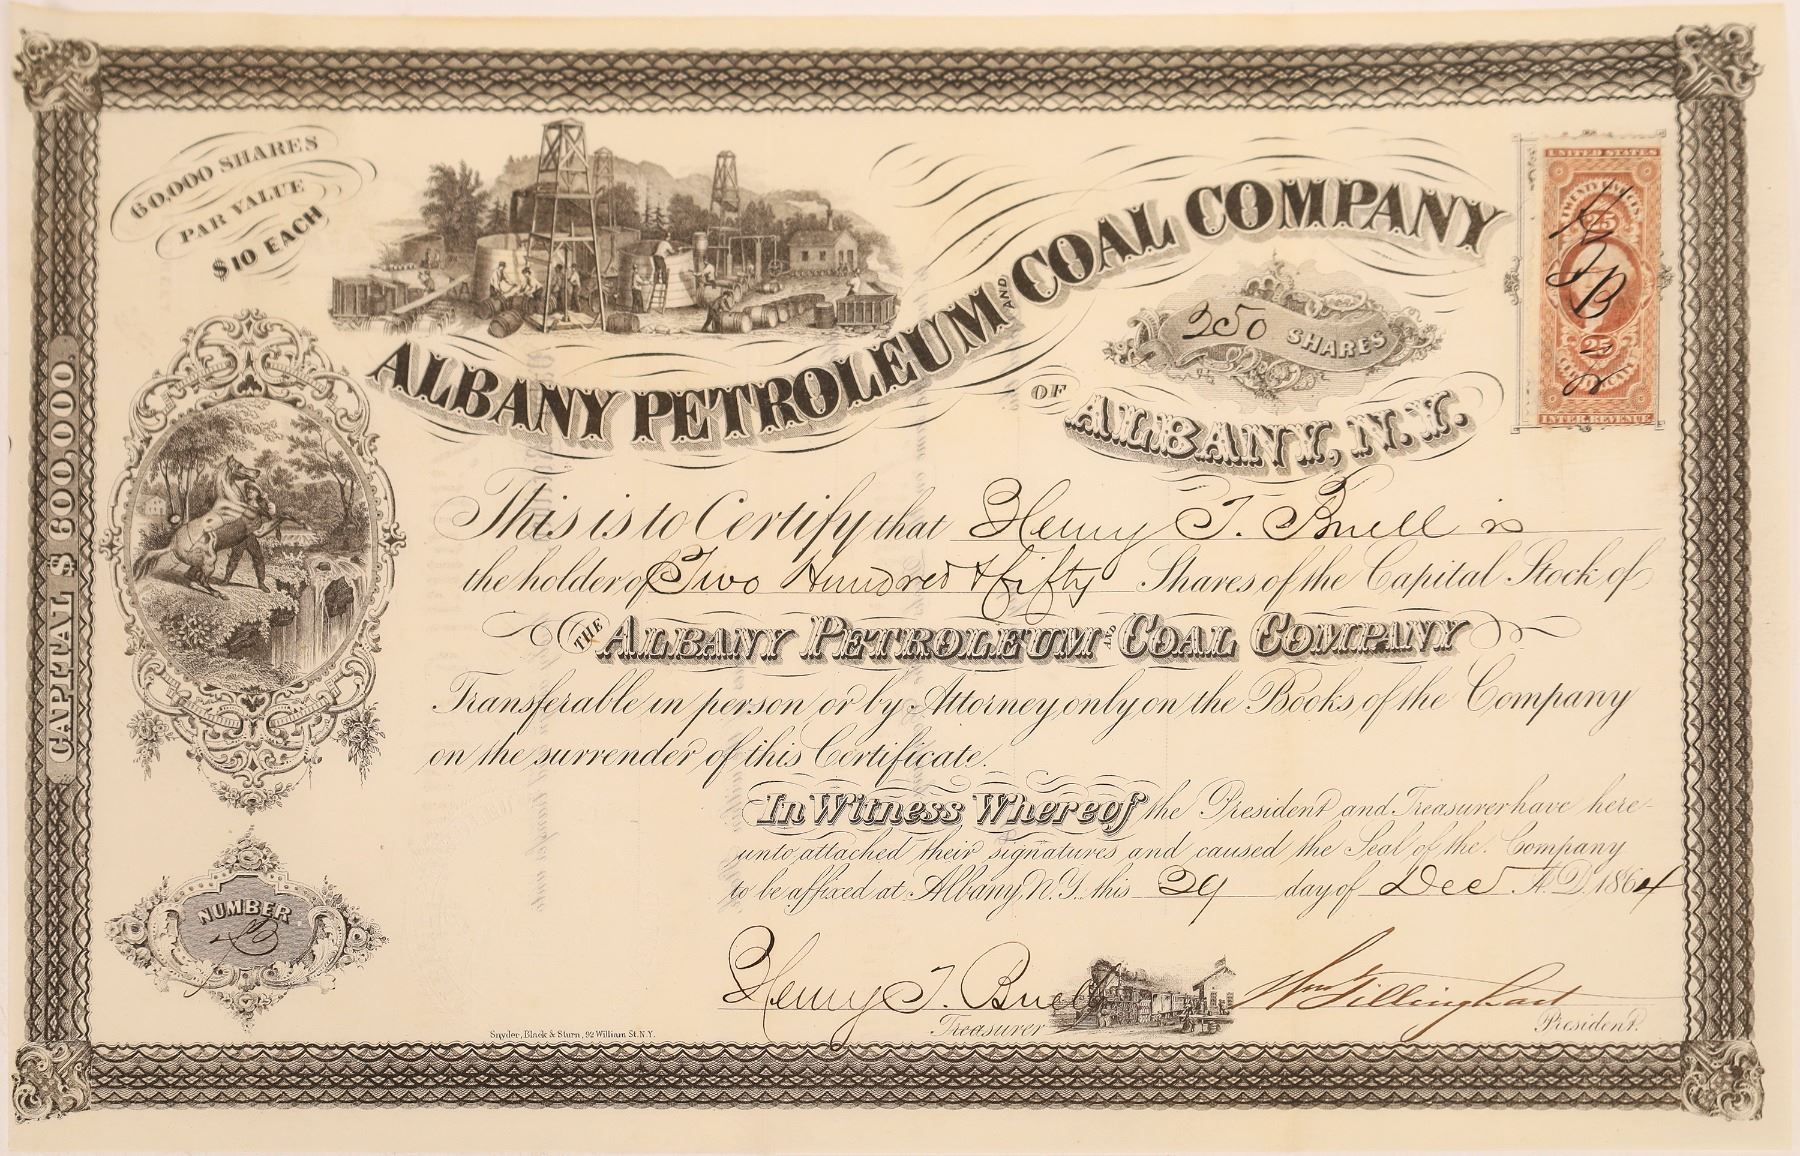 60,000 SHARES
PAR VALUE
$10 EACH
ALBANY PETROLEUM AND COAL COMPANY
250 SHARES
OF
ALBANY, N.Y.
UNITED STATES
25
HTB
25
INTER. REVENUE
CAPITAL $600,000.
This is to Certify that Henry T. Buell is
the holder of Two Hundred & fifty Shares of the Capital Stock of
THE ALBANY PETROLEUM AND COAL COMPANY
Transferable in person or by Attorney only on the Books of the Company
on the surrender of this Certificate.
In Witness Whereof the President and Treasurer have here-
unto attached their signatures and caused the Seal of the Company
to be affixed at Albany, N.Y. this 29 day of Dec A.D. 1864
NUMBER
Henry T. Buell
Treasurer
Wm Tillinghast
President.
Snyder, Black & Sturn, 92 William St. N.Y.